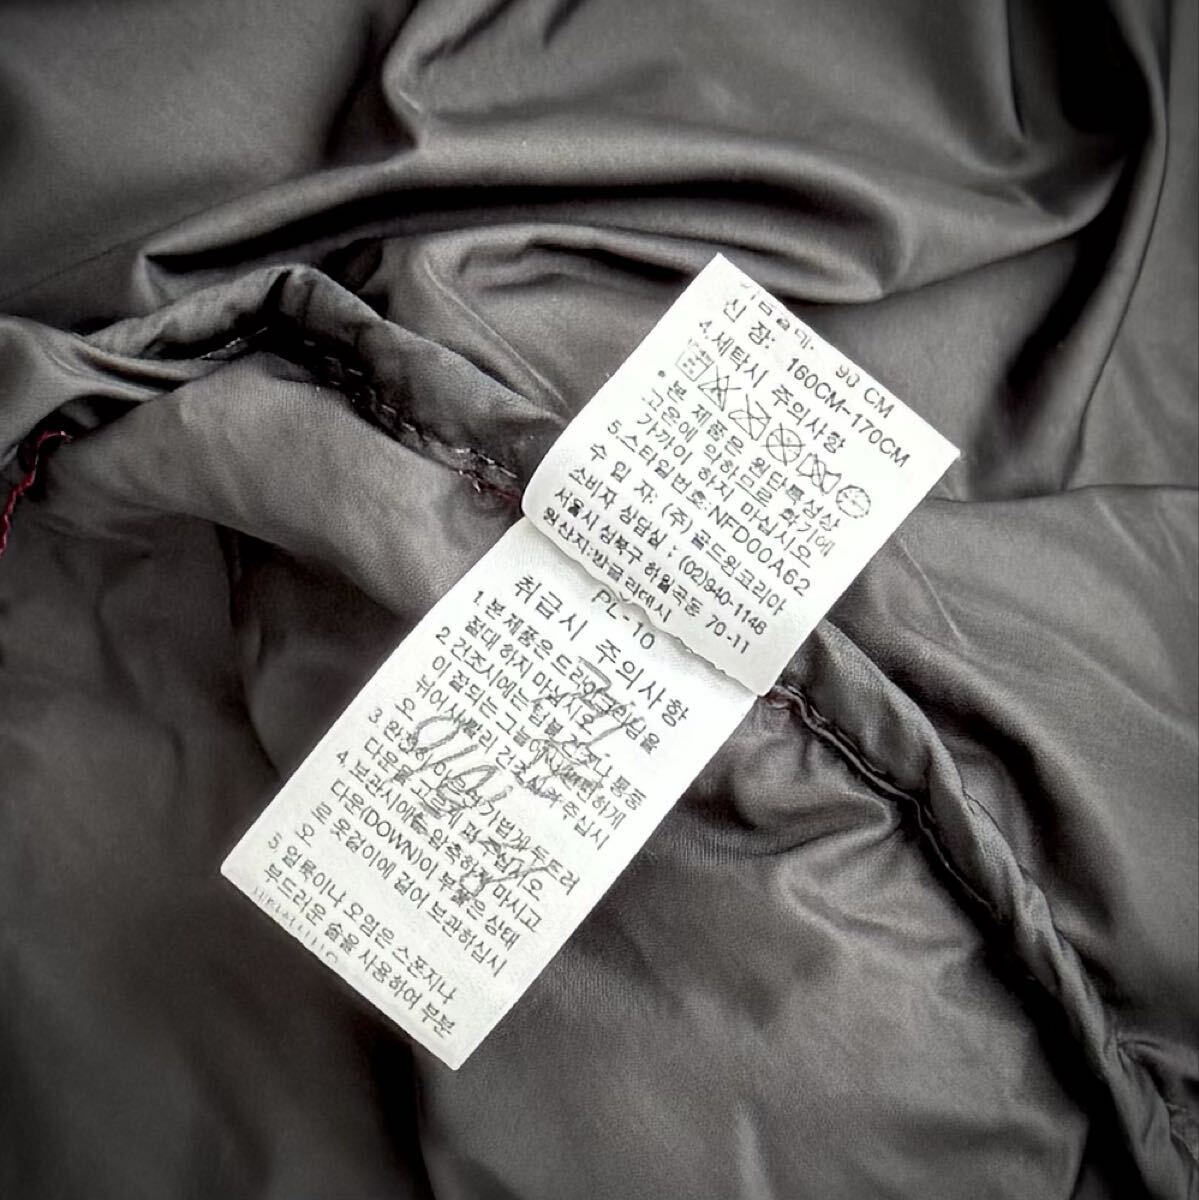 가슴둘레: 90 CM
신 장: 160CM-170CM
4.세탁시 주의사항
• 본 제품은 원단특성상
고온에 약하므로 화기에
가까이 하지 마십시오
5.스타일번호:NFD00A62
수 입 자: (주)골드윈코리아
소비자 상담실 : (02)940-1148
서울시 성북구 하월곡동 70-11
원산지:방글라데시
PL-10
취급시 주의사항
1. 본 제품은 드라이크리닝을
절대 하지 마십시오
2. 건조시에는
이 잘되는 그늘에
뉘어 빨리 건조시켜 주십시
오
3. 가볍게 두드려
다운을 고르게 펴주십시오
4. 보관시에는 압축하지 마시고
다운(DOWN)이 부풀은 상태
로 옷걸이에 걸어 보관하십시
오
5. 얼룩이나 오염은 스폰지나
부드러운 솔을 사용하여 부분